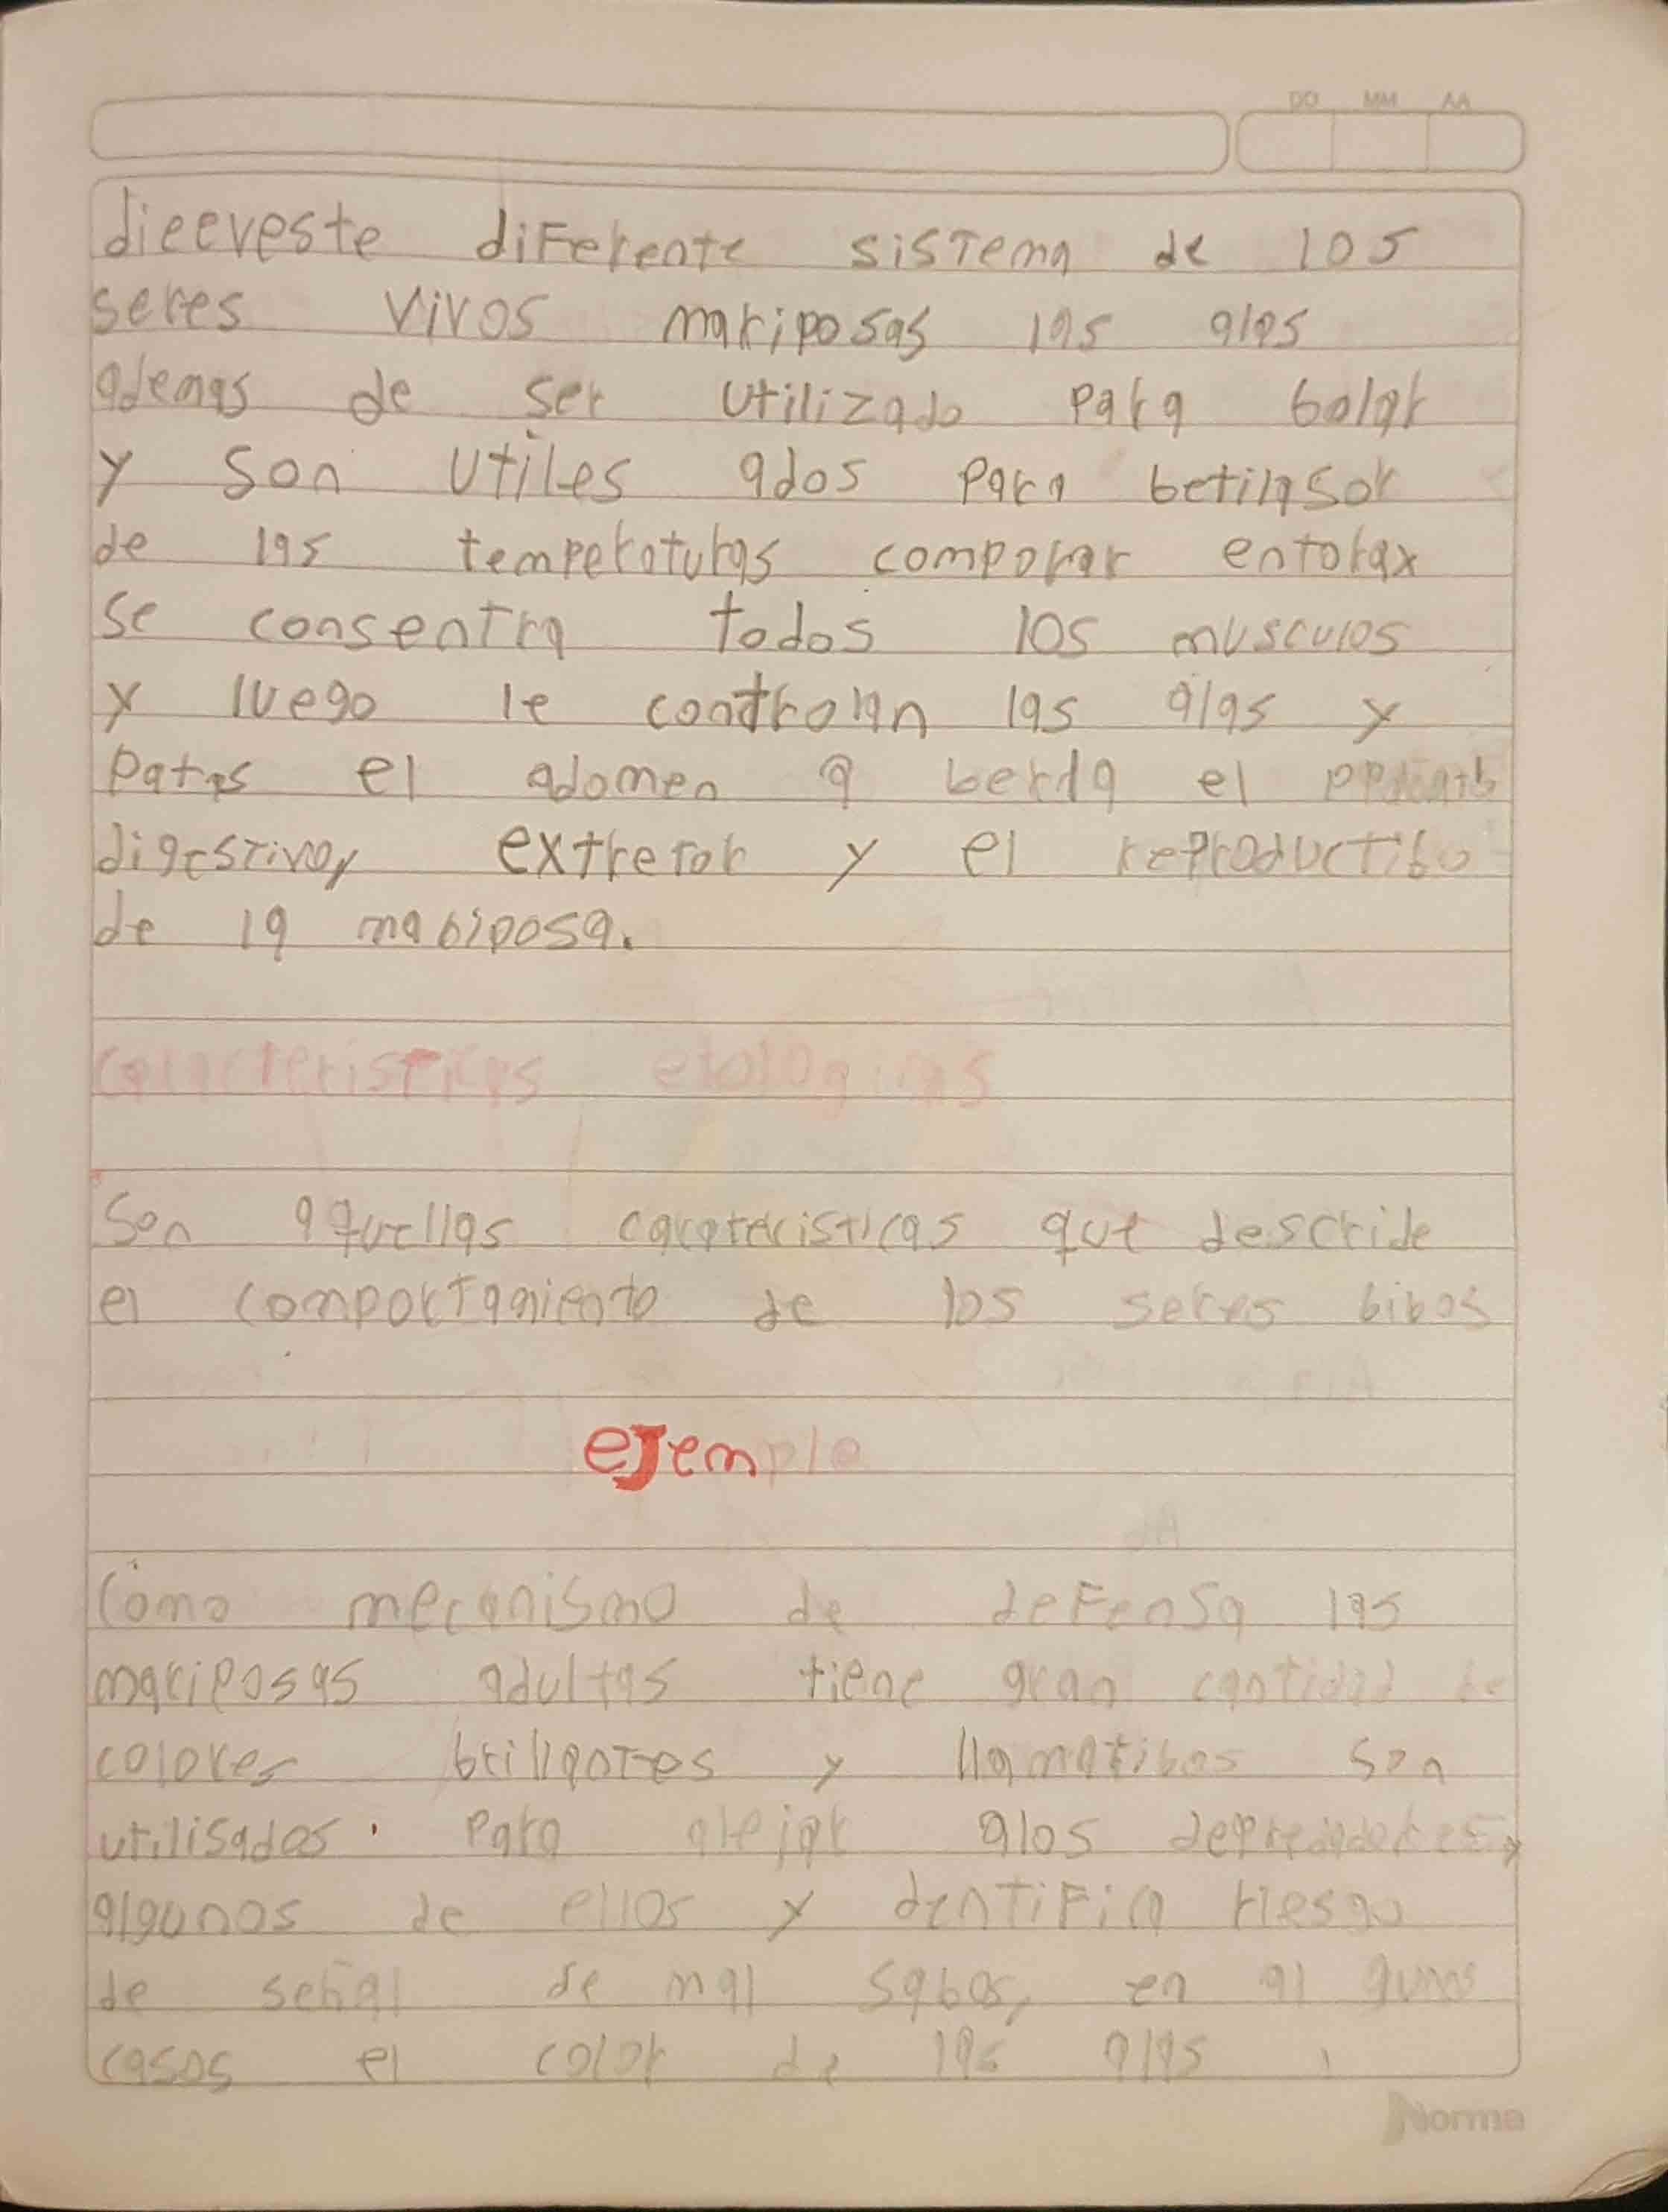 DD MM AA
dieeveste diferente sistema de los
seres vivos mariposas las alas
ademas de ser utilizado para bolar
y son utiles ados para betilasor
de las temperaturas comporar entorax
se consentra todos los musculos
y luego le controlan las alas y
patas el adomen a berda el
digestivo, extretor y el reproductibo
de la mabiposa.
caracteristicas etologicas
Son aquellas caracteristicas que descride
el comportamiento de los seres bibos
ejemplo
Como mecanismo de defensa las
mariposas adultas tiene gran cantidad de
colores brillantes y llamatibos son
utilisados para alejar alos depredadores,
algunos de ellos y dentifica riesgo
de señal de mal sabos, en al gunos
casos el color de las alas
Norma